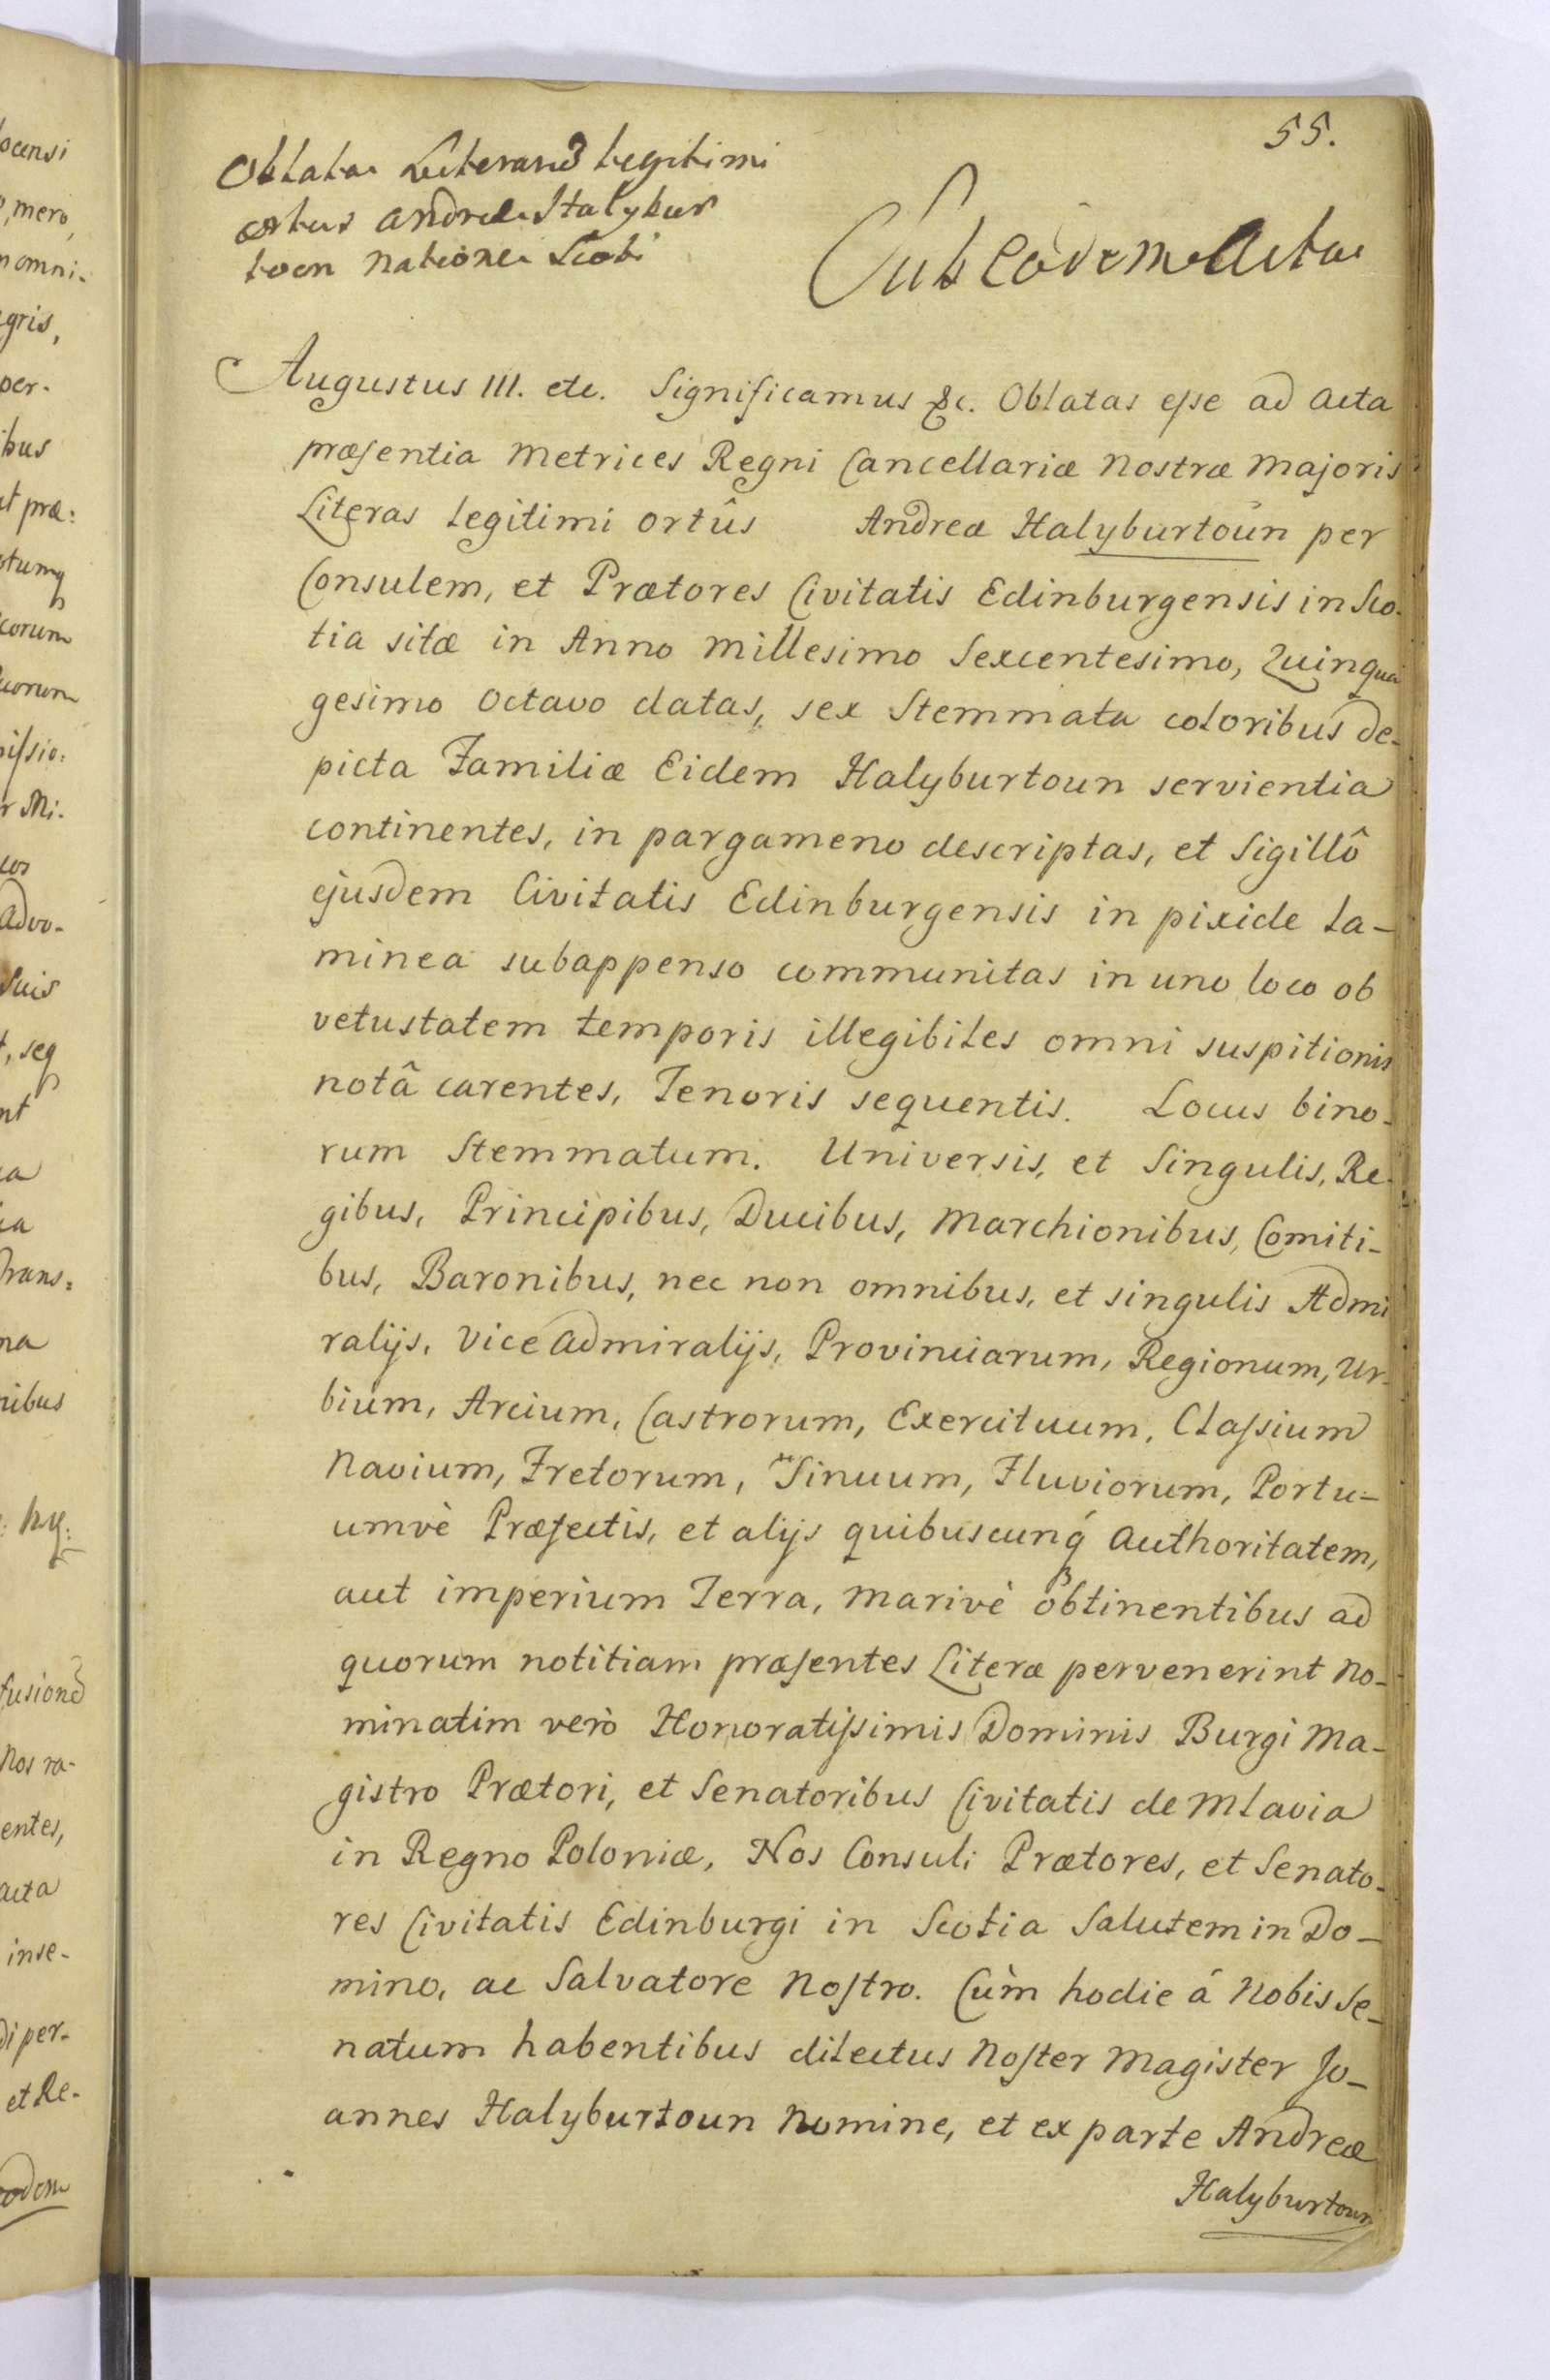 55.
Oblata Literarũ legitimi
ortus Andreæ Halybur
toun natione Scoti
Sub eodem Actu
Augustus III. etc. Significamus &c. Oblatas eſse ad Acta
præſentia Metrices Regni Cancellariæ Nostræ Majoris
Literas Legitimi Ortûs Andreæ Halyburtoun per
Consulem, et Prætores Civitatis Edinburgensis in Sco-
tia sitæ in Anno Millesimo Sexcentesimo, Quinqua
gesimo Octavo datas, sex Stemmata coloribus de-
picta Familiæ Eidem Halyburtoun servientia
continentes, in pargameno descriptas, et Sigillô
ejusdem Civitatis Edinburgensis in pixide La-
minea subappenso communitas in uno loco ob
vetustatem temporis illegibiles omni suspitionis
notâ carentes, Tenoris sequentis. Locus bino-
rum Stemmatum. Universis, et Singulis, Re-
gibus, Principibus, Ducibus, Marchionibus, Comiti-
bus, Baronibus, nec non omnibus, et singulis Admi
ralijs, Vice Admiralijs, Provinciarum, Regionum, Ur-
bium, Arcium, Castrorum, Exercituum, Claſsium
Navium, Fretorum, Sinuum, Fluviorum, Portu-
umvè Præfectis, et alijs quibuscunq́ Authoritatem,
aut imperium Terra, Marivè obtinentibus ad
quorum notitiam præſentes Literæ pervenerint No-
minatim verò Honoratiſsimis Dominis Burgi Ma-
gistro Prætori, et Senatoribus Civitatis de Mlavia
in Regno Poloniæ, Nos Consuli Prætores, et Senato-
res Civitatis Edinburgi in Scotia Salutem in Do-
mino, ac Salvatore Noſtro. Cùm hodie á Nobis Se-
natum habentibus dilectus Noſter Magister Jo-
annes Halyburtoun Nomine, et ex parte Andreæ
Halyburtoun